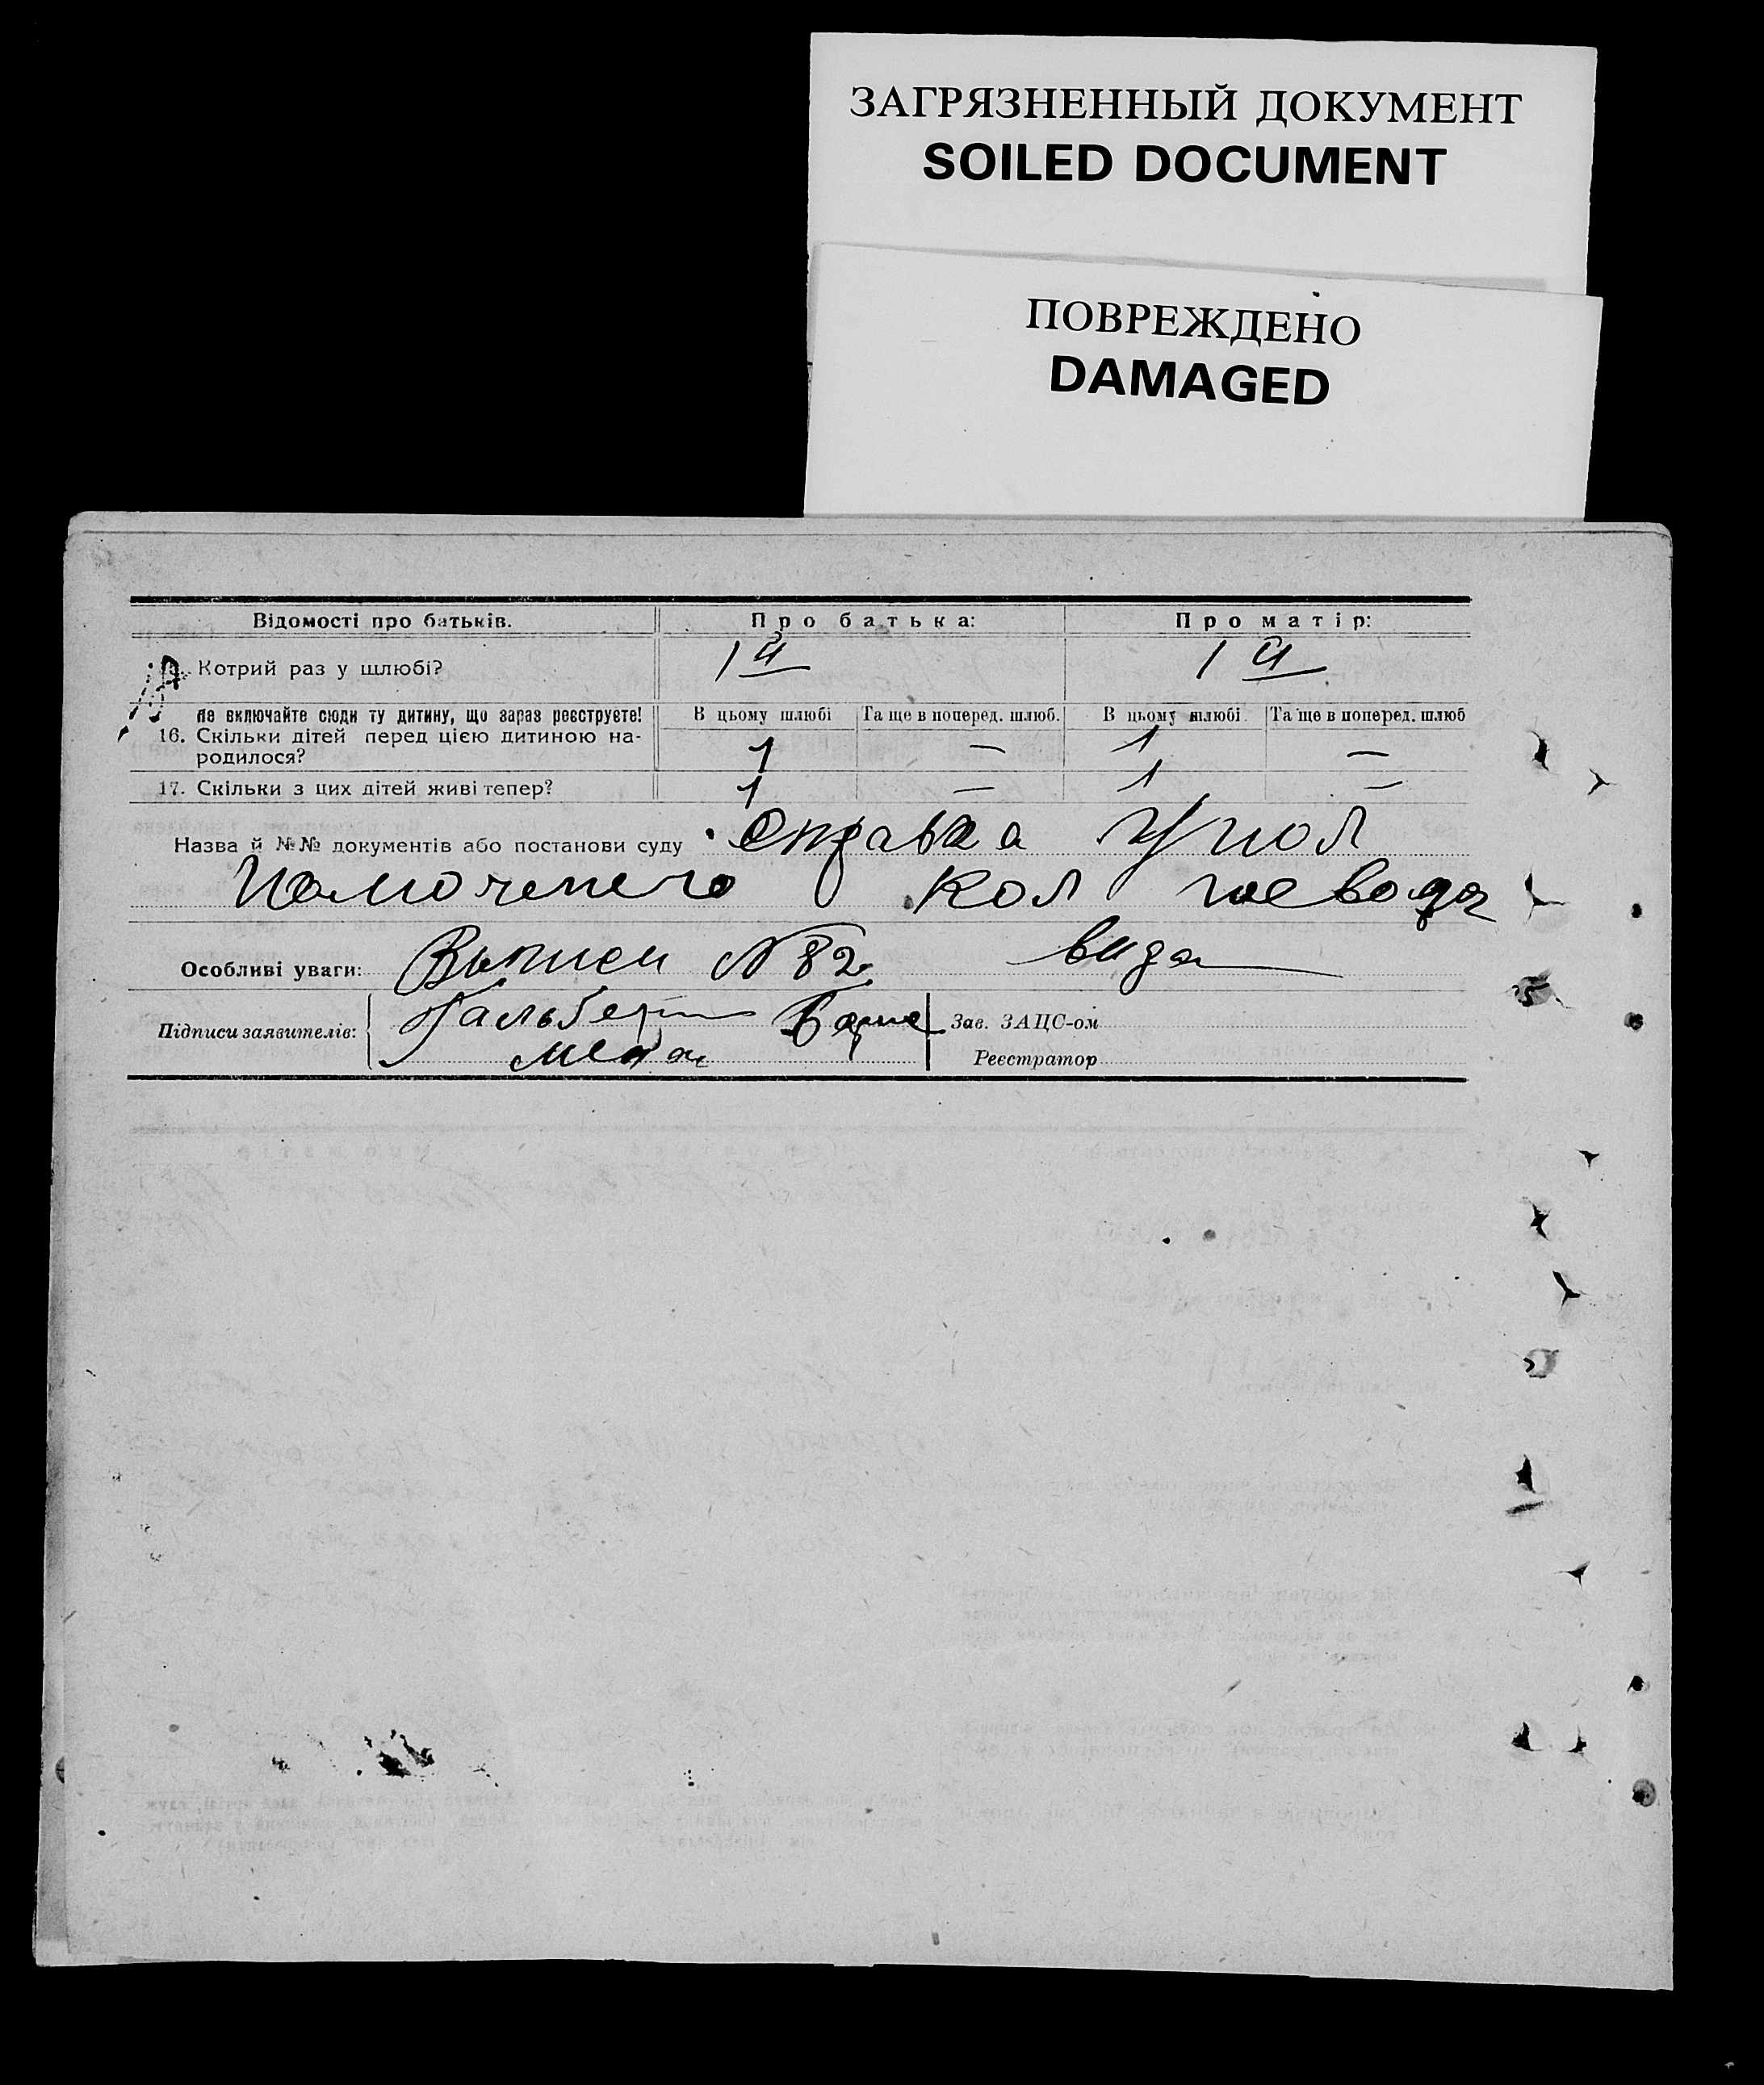 ЗАГРЯЗНЕННЫЙ ДОКУМЕНТ
SOILED DOCUMENT
ПОВРЕЖДЕНО
DAMAGED
Відомості про батьків. Про батька: Про матір:
Котрий раз у шлюбі? 1й 1й
Не включайте сюди ту дитину, що зараз реєструєте! В цьому шлюбі Та ще в поперед. шлюб. В цьому шлюбі Та ще в поперед. шлюб
16. Скільки дітей перед цією дитиною на-
родилося? 1 — 1 —
17. Скільки з цих дітей живі тепер? 1 — 1 —
Назва й №№ документів або постанови суду справка
Кол
Особливі уваги: Выписи N 82 вида
Підписи заявителів: Гальбер Зав. ЗАЦС-ом
Реєстратор